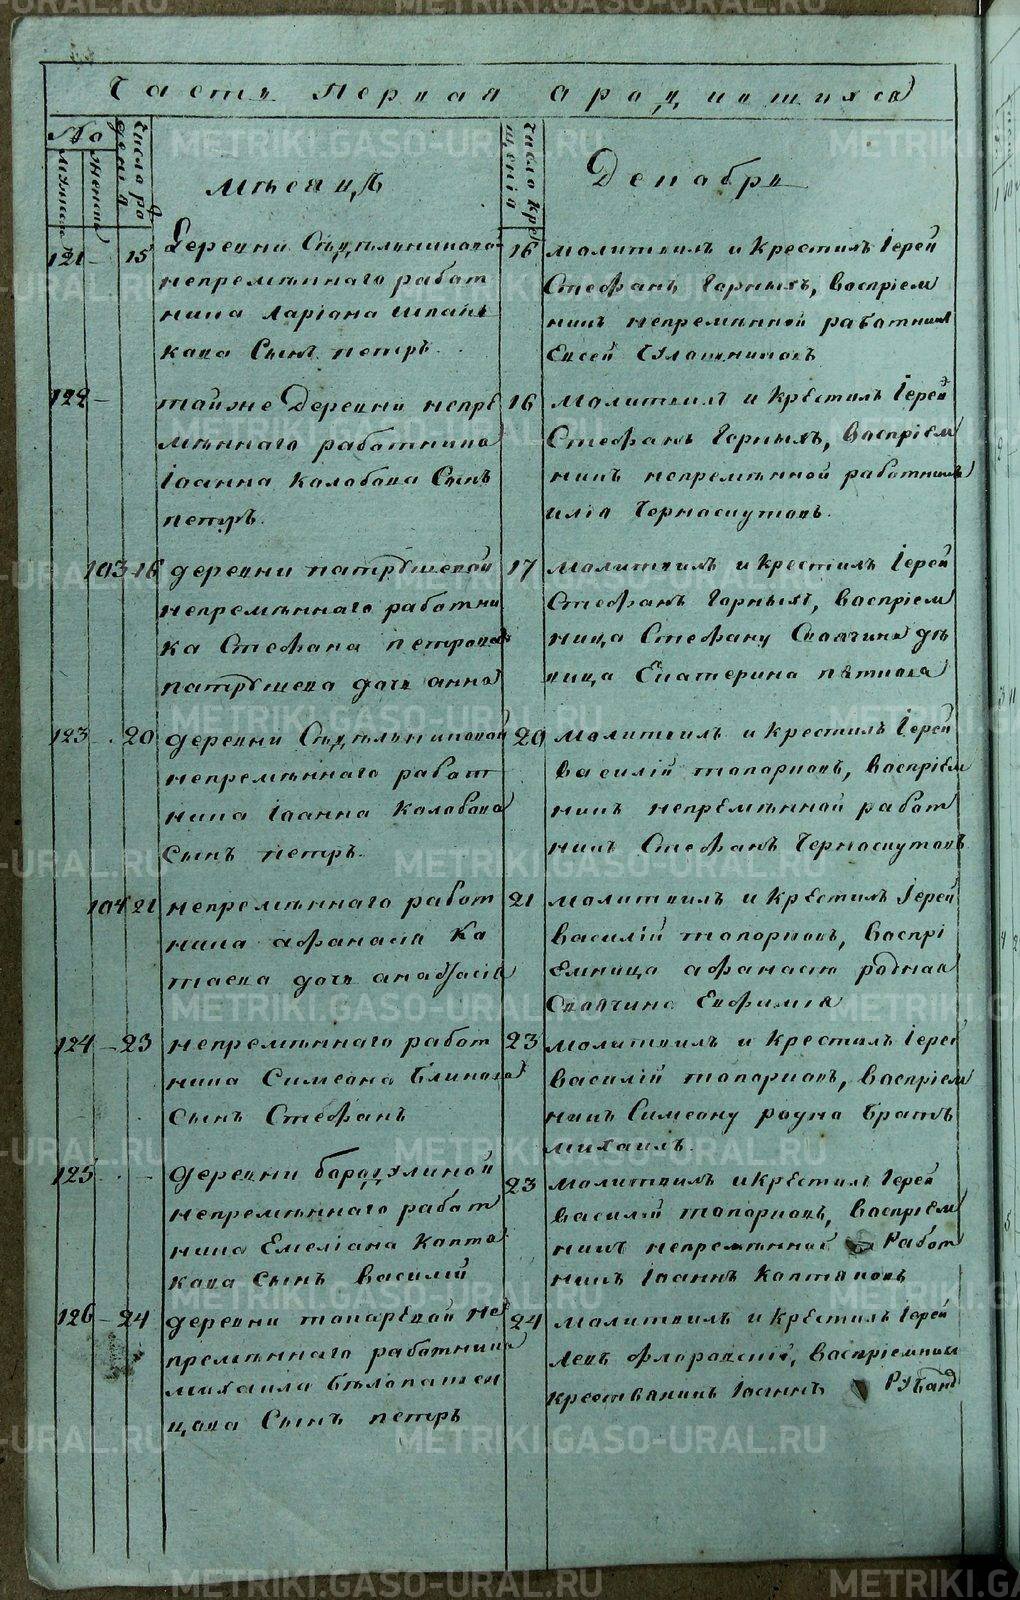 Часть Первая о родившихся
№
мужеска
женска
число рож
дения
Мѣсяцъ
число кре
щенія
Декабрь
121 15 Деревни Сѣдѣльниковой
непремѣннаго работ
ника Ларіона
кова Сынъ петръ.
16 молитвилъ и крестилъ Іерей
Стефанъ Горныхъ, воспріем
никъ непремѣнной работникъ
Евсей
122 – тойже Деревни непре
мѣннаго работника
Іоанна Колобова Сынъ
петръ.
16 молитвилъ и крестилъ Іерей
Стефанъ Горныхъ, воспріем
никъ непремѣнной работникъ
илія Черноскутовъ.
103 16 деревни патрушевой
непремѣннаго работни
ка Стефана петрова
патрушева дочь анна
17 молитвилъ и крестилъ Іерей
Стефанъ Горныхъ, воспріем
ница Стефану Своячина дѣ
вица Екатерина
123 20 деревни Сѣдѣльниковой
непремѣннаго работ
ника Іоанна Колобова
сынъ петръ.
20 молитвилъ и крестилъ Іерей
василій топорковъ, воспріем
никъ непремѣнной работ
никъ Стефанъ Черноскутовъ
104 21 непремѣннаго работ
ника афанасія Ка
таева дочь анастасія
21 молитвилъ и крестилъ Іерей
василій топорковъ, воспрі
емница афанасію родная
Своячина Евфимія
124 – 23 непремѣннаго работ
ника Симеона Блинова
сынъ Стефанъ
23 молитвилъ и крестилъ Іерей
василій топорковъ, воспріем
никъ Симеону родно братъ
михаилъ.
125 – деревни бородулиной
непремѣннаго работ
ника Емеліана Копто
кова сынъ василій
23 молитвилъ и крестилъ Іерей
василій топорковъ, воспріем
никъ непремѣнной Работ
никъ Іоаннъ
126 – 24 деревни токаревой не
премѣннаго работника
михаила Бѣлопашен
цова Сынъ петръ
24 молитвилъ и крестилъ Іерей
Левъ Флоровскій, воспріемникъ
крестьянинъ Іоаннъ
METRIKI.GASO-URAL.RU